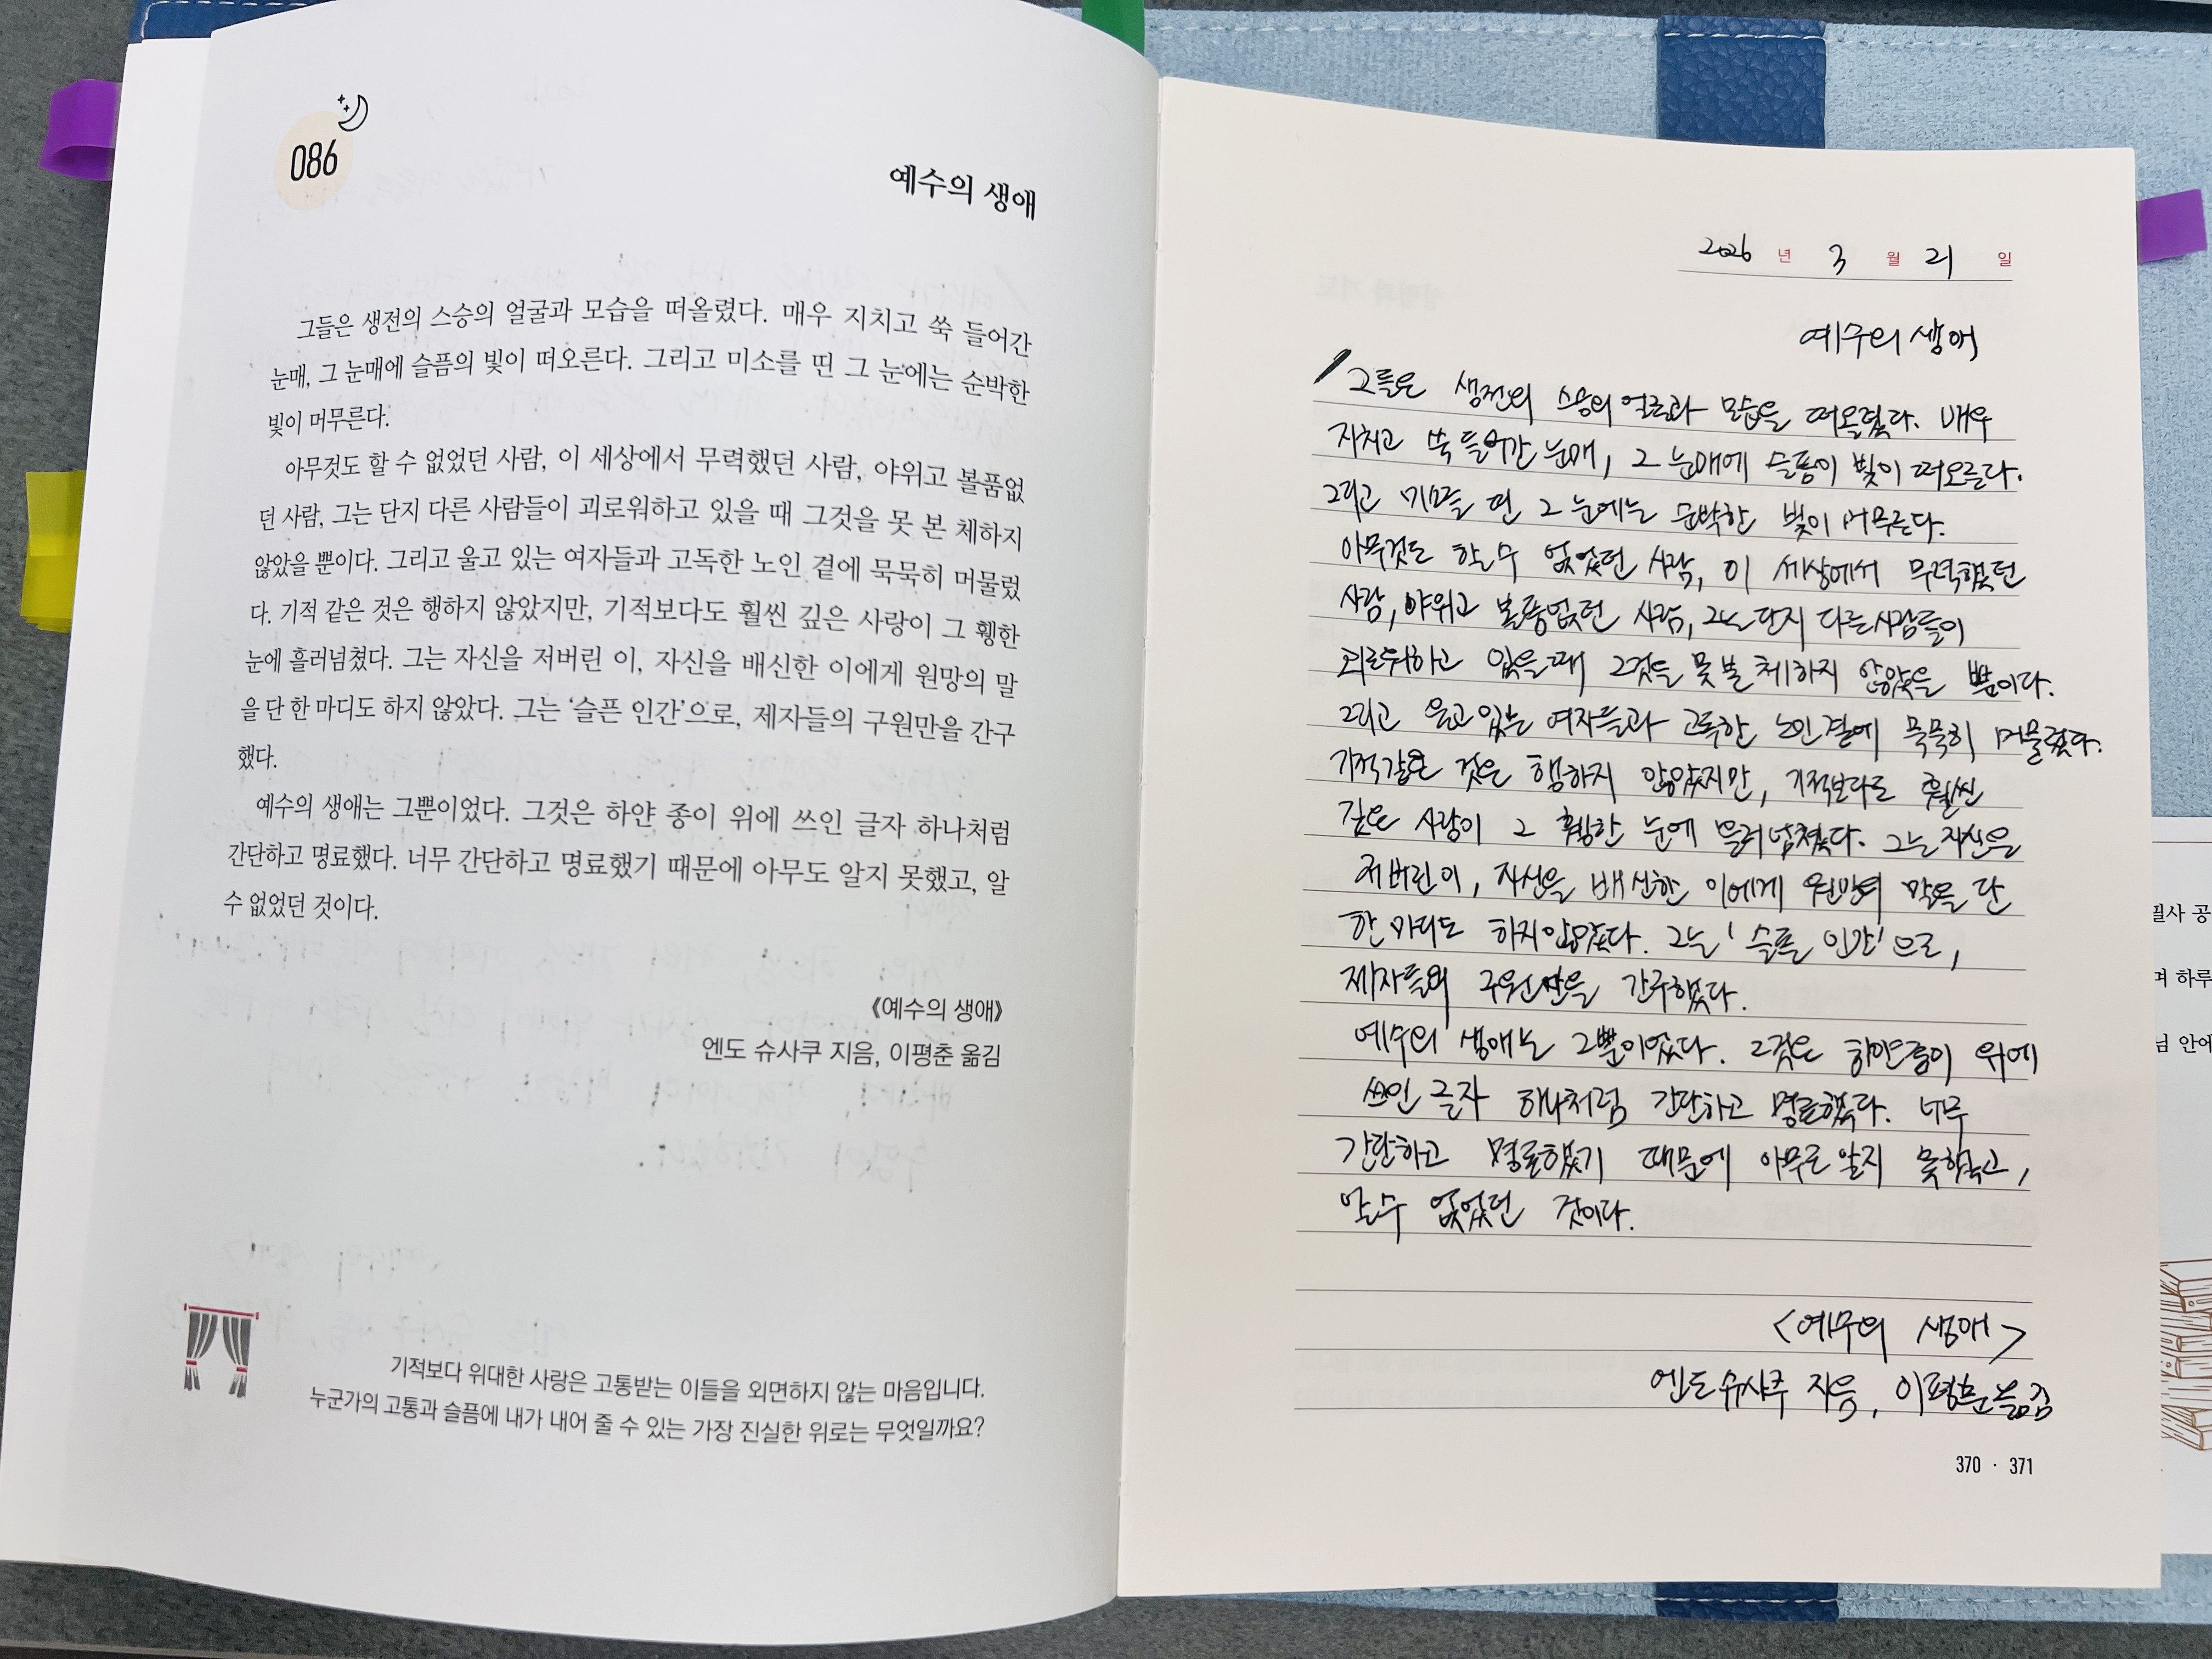 086
예수의 생애
그들은 생전의 스승의 얼굴과 모습을 떠올렸다. 매우 지치고 쑥 들어간
눈매, 그 눈매에 슬픔의 빛이 떠오른다. 그리고 미소를 띤 그 눈에는 순박한
빛이 머무른다.
아무것도 할 수 없었던 사람, 이 세상에서 무력했던 사람, 야위고 볼품없
던 사람, 그는 단지 다른 사람들이 괴로워하고 있을 때 그것을 못 본 체하지
않았을 뿐이다. 그리고 울고 있는 여자들과 고독한 노인 곁에 묵묵히 머물렀
다. 기적 같은 것은 행하지 않았지만, 기적보다도 훨씬 깊은 사랑이 그 휑한
눈에 흘러넘쳤다. 그는 자신을 저버린 이, 자신을 배신한 이에게 원망의 말
을 단 한 마디도 하지 않았다. 그는 ‘슬픈 인간’으로, 제자들의 구원만을 간구
했다.
예수의 생애는 그뿐이었다. 그것은 하얀 종이 위에 쓰인 글자 하나처럼
간단하고 명료했다. 너무 간단하고 명료했기 때문에 아무도 알지 못했고, 알
수 없었던 것이다.
《예수의 생애》
엔도 슈사쿠 지음, 이평춘 옮김
기적보다 위대한 사랑은 고통받는 이들을 외면하지 않는 마음입니다.
누군가의 고통과 슬픔에 내가 내어 줄 수 있는 가장 진실한 위로는 무엇일까요?
2026 년 3 월 21 일
예수의 생애
그들은 생전의 스승의 얼굴과 모습을 떠올렸다. 매우
지치고 쑥 들어간 눈매, 그 눈매에 슬픔이 빛이 떠오른다.
그리고 띤 그 눈에는 순박한 빛이 머무른다.
아무것도 할 수 없었던 사람, 이 세상에서 무력했던
사람, 야위고 볼품없던 사람, 그는 단지 다른 사람들이
괴로워하고 있을 때 그것을 못 본 체하지 않았을 뿐이다.
그리고 울고 있는 여자들과 고독한 노인 곁에 묵묵히 머물렀다.
기적같은 것은 행하지 않았지만, 기적보다도 훨씬
깊은 사랑이 그 휑한 눈에 흘러넘쳤다. 그는 자신을
저버린 이, 자신을 배신한 이에게 원망의 말을 단
한 마디도 하지 않았다. 그는 '슬픈 인간'으로,
제자들의 구원만을 간구했다.
예수의 생애는 그뿐이었다. 그것은 하얀 종이 위에
쓰인 글자 하나처럼 간단하고 명료했다. 너무
간단하고 명료했기 때문에 아무도 알지 못했고,
알 수 없었던 것이다.
<예수의 생애>
엔도 슈사쿠 지음, 이평춘 옮김
370 · 371
필사 공
며 하루
님 안에